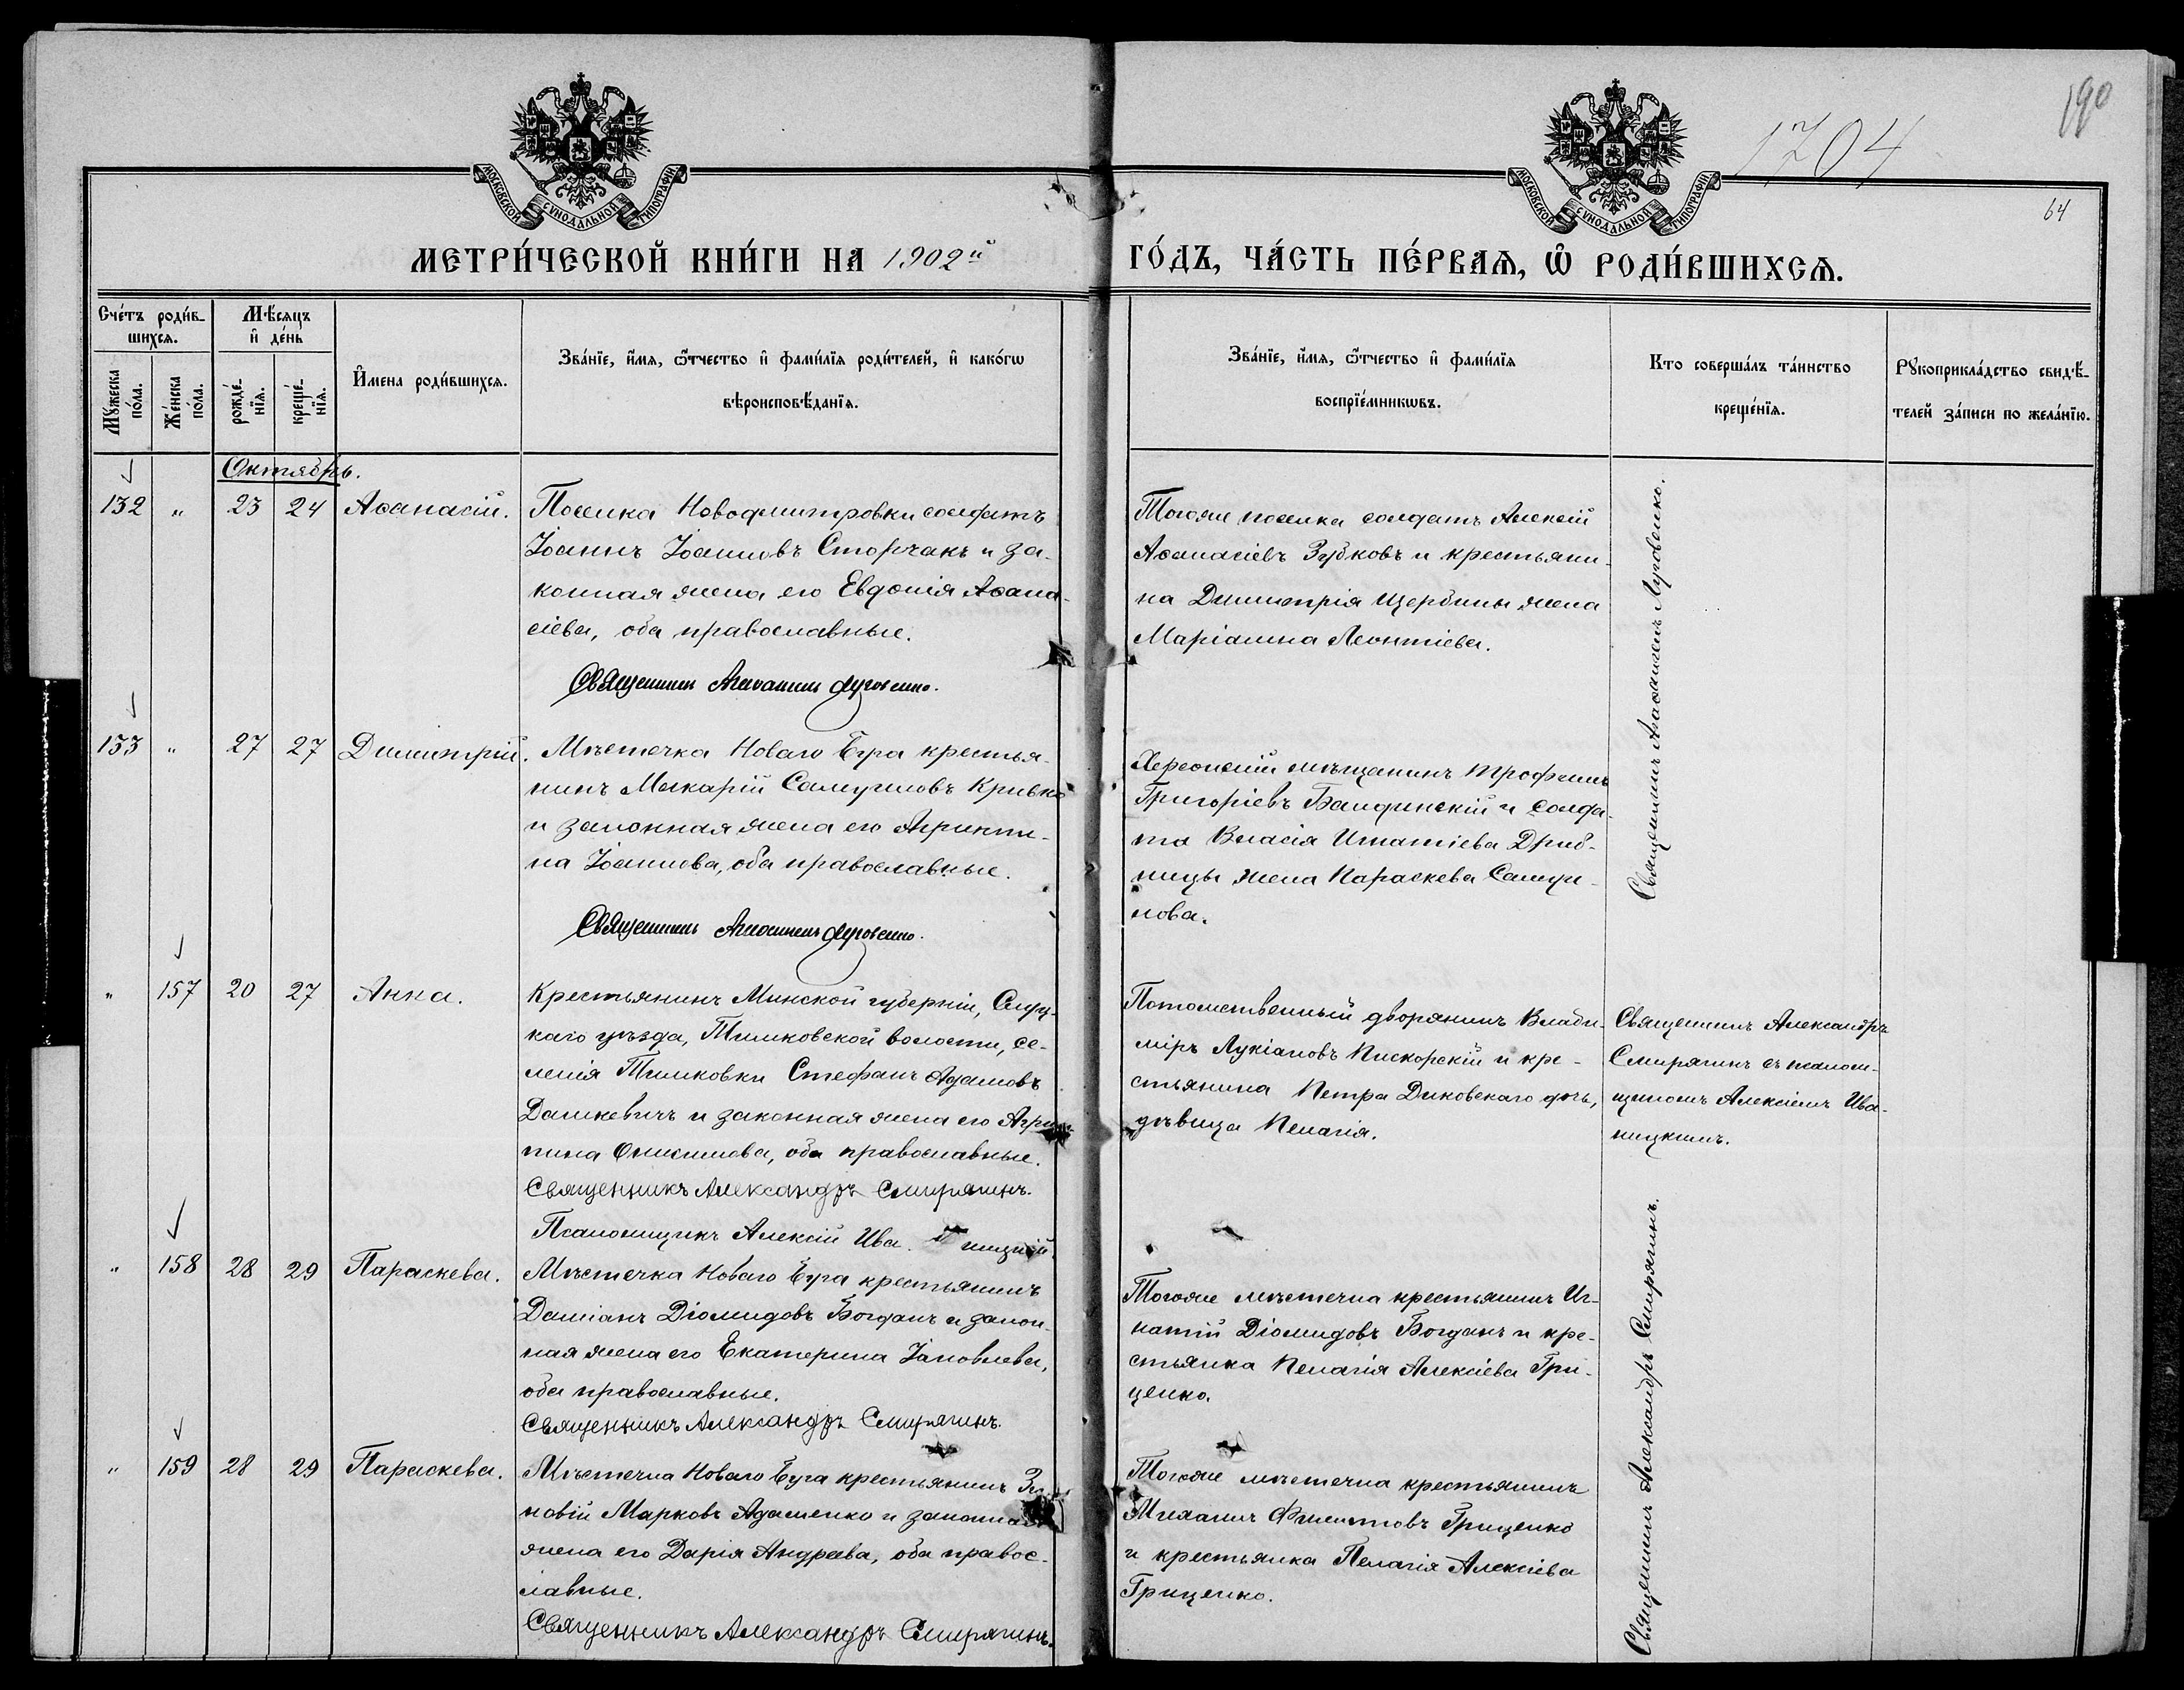 190
1704
64
МОСКОВСКОЙ СѴНОДАЛЬНОЙ ТИПОГРАФІИ
МОСКОВСКОЙ СѴНОДАЛЬНОЙ ТИПОГРАФІИ
МЕТРИ́ЧЕСКОЙ КНИ́ГИ НА 1902й
ГО́ДЪ, ЧА́СТЬ ПЕ́РВАѦ, Ѡ РОДИ́ВШИХСѦ.
Сче́тъ роди́в-
шихсѧ.
Мѣ́сѧцъ
и де́нь
Мꙋжеска
по́ла.
Же́нска
по́ла.
рожде́-
нїѧ.
креще́-
нїѧ.
И҆мена роди́вшихсѧ.
Зва́нїе, и҆́мѧ, ѻ҆́тчество и҆ фами́лїѧ роди́телей, и҆ како́гѡ
вѣроисповѣ́данїѧ.
Зва́нїе, и҆́мѧ, ѻ҆́тчество и҆ фами́лїѧ
воспрїе́мникѡвъ.
Кто соверша́лъ та́инство
креще́нїѧ.
Рꙋкоприкла́дство свидѣ́-
телей за́писи по жела́нїю.
Октябрь.
132 " 23 24 Аѳанасій.
Поселка Новодмитровки солдатъ
Іоаннъ Іоанновъ Сторчакъ и за-
конная жена его Евдокія Аѳана-
сіева, оба православные.
Священникъ Аѳанасій Луговенко.
Тогоже поселка солдатъ Алексій
Аѳанасіевъ Зубковъ и крестьяни-
на Димитрія Щербины жена
Маріанна Леонтіева.
Священникъ Луговенко.
133 " 27 27 Димитрій.
Мѣстечка Новаго Буга крестья-
нинъ Макарій Самуиловъ Кривко
и законная жена его Агриппи-
на Іоаннова, оба православные.
Священникъ Луговенко.
Херсонскій мѣщанинъ Трофимъ
Григоріевъ и солда-
та Власія Игнатіева Дриб-
ницы жена Параскева Самуи-
лова.
" 157 20 27 Анна.
Крестьянинъ Минской губерніи, Слуц-
каго уѣзда, Тимковской волости, се-
ленія Тимковки Стефанъ Адамовъ
Дашкевичъ и законная жена его Агрип-
пина Онисимова, оба православные.
Священникъ Александръ Смирягинъ.
Псаломщикъ Алексій Иваницкій.
Потомственный дворянинъ Влади-
міръ Лукіановъ Пискорскій и кре-
стьянина Петра Диковскаго дочь,
дѣвица Пелагія.
Священникъ Александръ
Смирягинъ съ псалом-
щикомъ Алексіемъ Ива-
ницкимъ.
" 158 28 29 Параскева.
Мѣстечка Новаго Буга крестьянинъ
Даміанъ Діомидовъ Богданъ и закон-
ная жена его Екатерина Іаковлева,
оба православные.
Священникъ Александръ Смирягинъ.
Тогоже мѣстечка крестьянинъ Иг-
натій Діомидовъ Богданъ и кре-
стьянка Пелагія Алексіева Гри-
ценко.
Священникъ Александръ Смирягинъ.
" 159 28 29 Параскева.
Мѣстечка Новаго Буга крестьянинъ Зи-
новій Марковъ Адаменко и законная
жена его Дарія Андреева, оба право-
славные.
Священникъ Александръ Смирягинъ.
Тогоже мѣстечка крестьянинъ
Михаилъ Гриценко
и крестьянка Пелагія Алексіева
Гриценко.